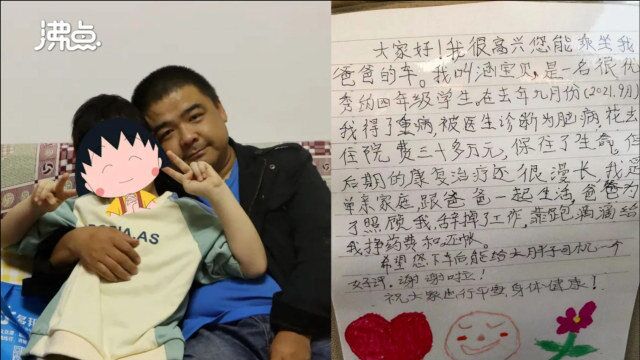 沸点
NA.AS
大家好!我很高兴您能乘坐我
爸爸的车。我叫涵宝贝,是一名很优
秀的四年级学生,在去年九月份(2021.9月)
我得了重病,被医生诊断为脑病,花去
住院费三十多万元,保住了生命,但
后期的康复治疗还很漫长,我是
单亲家庭,跟爸爸一起生活,爸爸为
了照顾我,辞掉了工作,靠跑滴滴给
我挣药费和还帐。
希望您下车后能给大胖子司机一个
好评,谢谢啦!
祝大家出行平安身体健康!